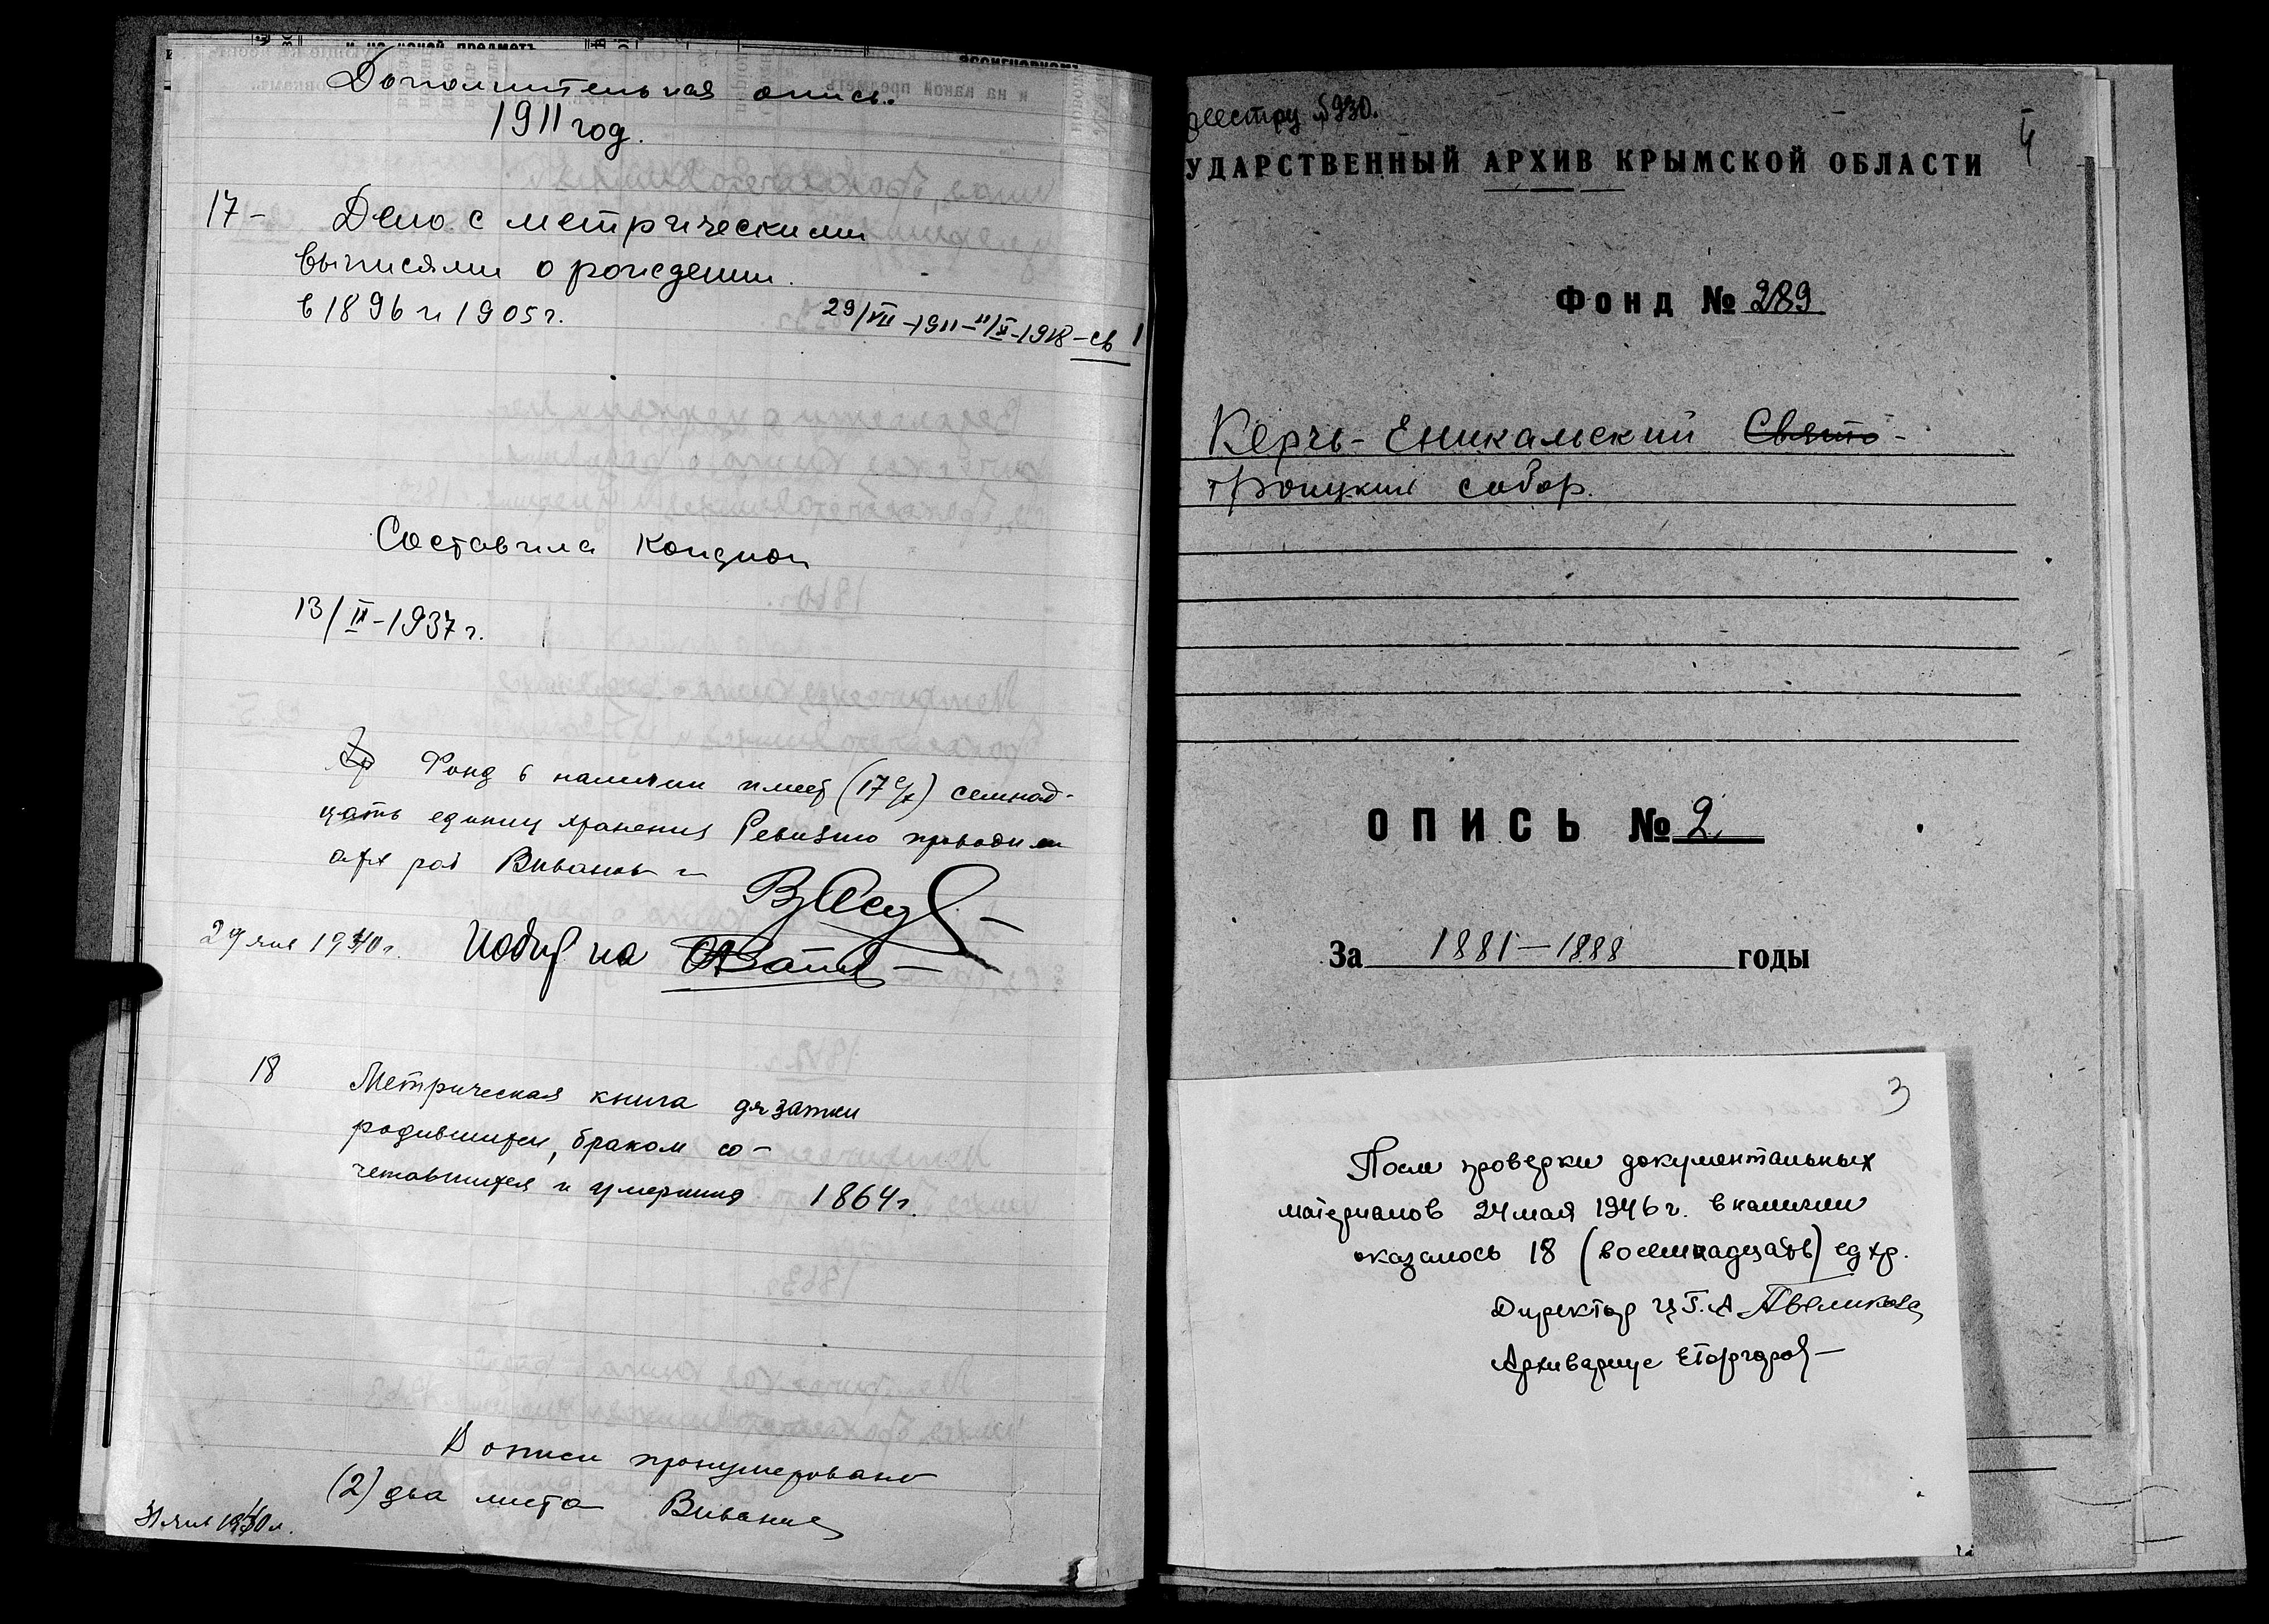 Дополнительная опись.
1911 год.
17- Дело с метрическими
выписями о рождении.
в 1896 и 1905 г. 29/VII-1911-11/XI-1918-св 1
Составила
13/II-1937 г.
Фонд в наличии имеет (17 ) семнад-
цать единиц хранения Ревизию проводили
29 янв 1940 г.
18 Метрическая книга
родившихся, браком со-
четавшихся и умерших 1864 г.
В описи пронумеровано
(2) два листа
31 янв 1940 г.
реестру №930.
4
УДАРСТВЕННЫЙ АРХИВ КРЫМСКОЙ ОБЛАСТИ
Фонд № 289
Керчь-Еникальский Свято-
троицкий собор.
ОПИСЬ № 2
За 1881-1888 годы
3
После проверки документальных
материалов 24 мая 1946 г. в наличии
оказалось 18 (восемнадцать) ед хр.
Директор ЦГ.А
Архивариус